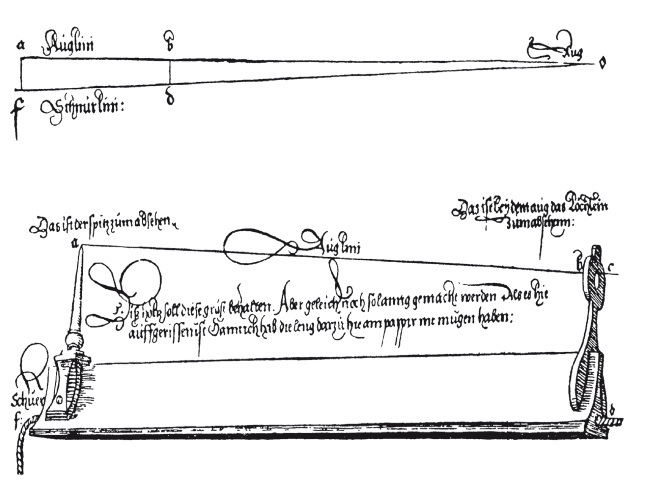 a Auglini b Aug o
f Schnurlini: d
Das ist der spitz zum absehen
Das ist bey dem aug das löchlein
zum absehenn:
a Auglini b c
Ditz holtz soll diese größ behalten. Aber geleich noch so lanng gemacht werden Als es hie
auffgerissen ist Dann ich hab die leng darzu hie am pappir nie mügen haben:
f d